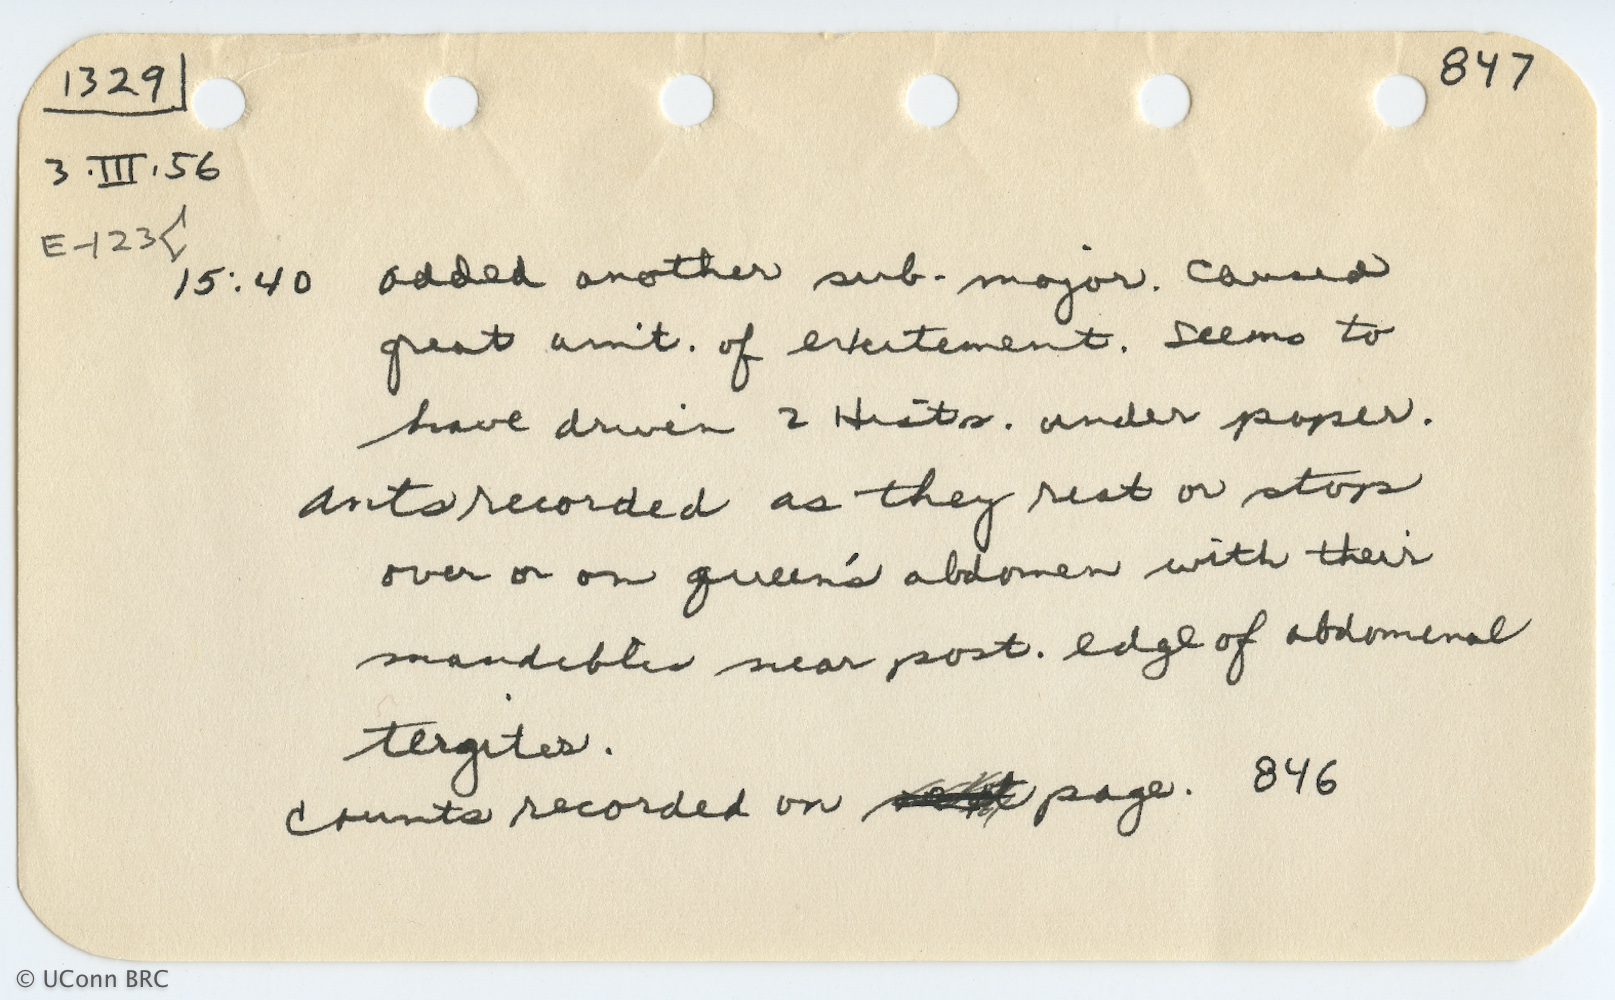 1329
847
3.III.56
E-123
15:40 added another sub-major. Caused
great amt. of excitement. Seems to
have driven 2 Hists. under paper.
Ants recorded as they rest or stop
over or on queen's abdomen with their
mandibles near post. edge of abdomenal
tergites.
Counts recorded on page. 846
© UConn BRC